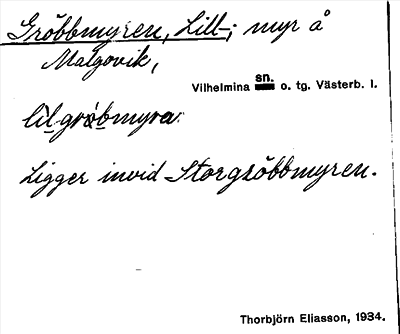 Gröbbmyren, Lill-; myr å
Malgovik,
Vilhelmina sn. o. tg. Västerb. l.
lìlgrö̀bmyra.
Ligger invid Storgröbbmyren.
Thorbjörn Eliasson, 1934.